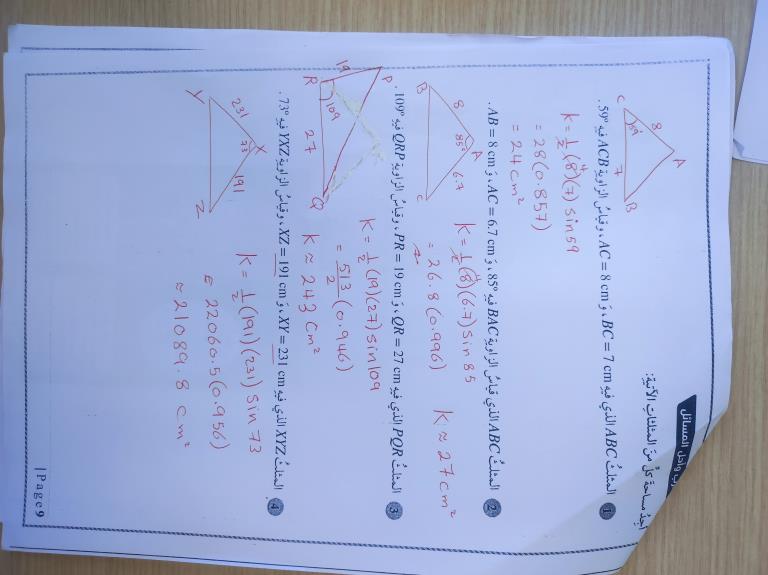 أتدرب وأحل المسائل
أجدُ مساحة كلٍّ منَ المثلثاتِ الآتيةِ:
1 المثلثُ ABC الذي فيهِ BC = 7 cm، وَ AC = 8 cm، وقياسُ الزاويةِ ACB فيهِ 59°.
A
8
C
59°
7
B
K = 1/2 (8)(7) sin 59
4
= 28 (0.857)
= 24 cm²
2 المثلثُ ABC الذي قياسُ الزاويةِ BAC فيهِ 85°، وَ AC = 6.7 cm، وَ AB = 8 cm.
A
B
8
85°
6.7
C
K = 1/2 (8)(6.7) sin 85
4
= 26.8 (0.996)
K ≈ 27 cm²
3 المثلثُ PQR الذي فيهِ QR = 27 cm، وَ PR = 19 cm، وقياسُ الزاويةِ QRP فيهِ 109°.
P
19
R
109
27
Q
K = 1/2 (19)(27) sin 109
= 513/2 (0.946)
K ≈ 243 cm²
4 المثلثُ XYZ الذي فيهِ XY = 231 cm، وَ XZ = 191 cm، وقياسُ الزاويةِ YXZ فيهِ 73°.
X
Y
231
73
191
Z
K = 1/2 (191)(231) sin 73
= 22060.5 (0.956)
≈ 21089.8 cm²
| Page 9